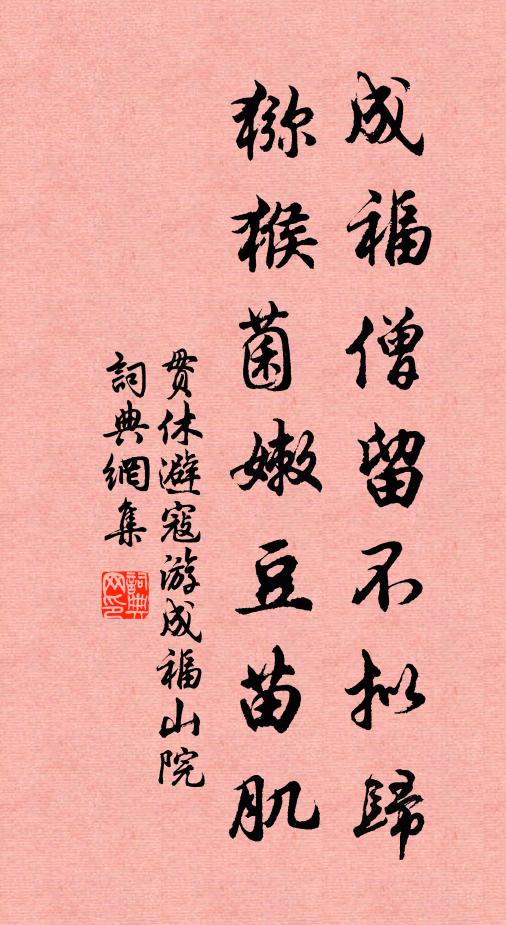 成福僧留不拟歸
猕猴菌嫩豆苗肌
贯休避寇游成福山院
詞典網集
詞典网印